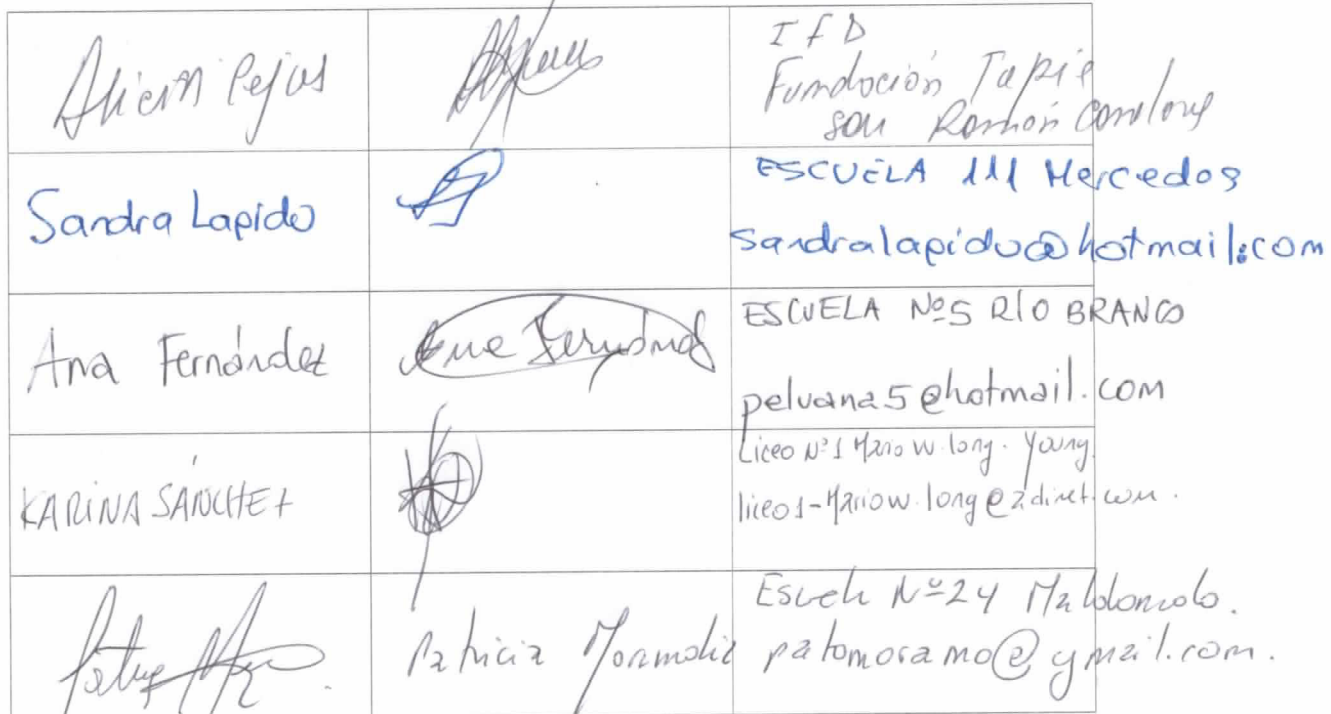 Alicia Pejas
IFD
Fundación Tapie
San Ramón Canelones
Sandra Lapido
ESCUELA 111 Mercedes
sandralapido@hotmail.com
Ana Fernández
Ana Fernández
ESCUELA Nº5 RÍO BRANCO
peluana5@hotmail.com
KARINA SÁNCHEZ
Liceo Nº1 Mario W. long. Young.
liceo1-Mariow.long@adinet.com.
Patricia
Escuela Nº24 Maldonado.
patomoramo@gmail.com.